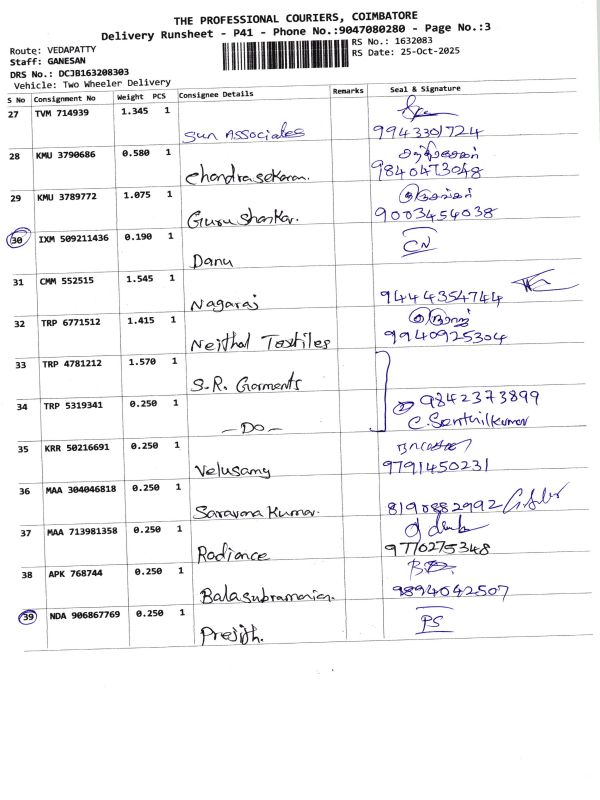 THE PROFESSIONAL COURIERS, COIMBATORE
Delivery Runsheet - P41 - Phone No.:9047080280 - Page No.:3
Route: VEDAPATTY
RS No.: 1632083
Staff: GANESAN
RS Date: 25-Oct-2025
DRS No.: DCJB163208303
Vehicle: Two Wheeler Delivery
S No Consignment No Weight PCS Consignee Details Remarks Seal & Signature
27 TVM 714939 1.345 1
Sun Associates 9943301724
28 KMU 3790686 0.580 1
Chandrasekaran. 9840473048
29 KMU 3789772 1.075 1
Guru Shankar. 9003454038
30 IXM 509211436 0.190 1 CN
Danu
31 CMM 552515 1.545 1
Nagaraj 9444354744
32 TRP 6771512 1.415 1
Neithal Textiles 9940925304
33 TRP 4781212 1.570 1
S.R. Garments
34 TRP 5319341 0.250 1 9842373899
- DO - C. Senthilkumar
35 KRR 50216691 0.250 1
Velusamy 9791450231
36 MAA 304046818 0.250 1
Saravana Kumar. 8190882992
37 MAA 713981358 0.250 1
Radiance 9770275348
38 APK 768744 0.250 1
Balasubramanian. 9894042507
39 NDA 906867769 0.250 1 PS
Prejith.